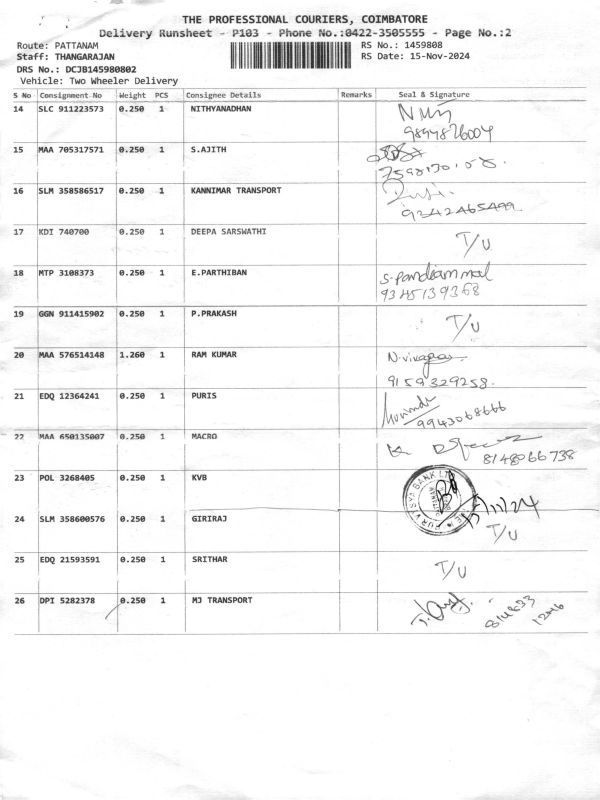 THE PROFESSIONAL COURIERS, COIMBATORE
Delivery Runsheet - P103 - Phone No.:0422-3505555 - Page No.:2
Route: PATTANAM RS No.: 1459808
Staff: THANGARAJAN RS Date: 15-Nov-2024
DRS No.: DCJB145980802
Vehicle: Two Wheeler Delivery
S No Consignment No Weight PCS Consignee Details Remarks Seal & Signature
14 SLC 911223573 0.250 1 NITHYANADHAN
9894826004
15 MAA 705317571 0.250 1 S.AJITH
16 SLM 358586517 0.250 1 KANNIMAR TRANSPORT
9342465499
17 KDI 740700 0.250 1 DEEPA SARSWATHI T/U
18 MTP 3108373 0.250 1 E.PARTHIBAN S.Pandiammal
9345139368
19 GGN 911415902 0.250 1 P.PRAKASH T/U
20 MAA 576514148 1.260 1 RAM KUMAR
9159329258
21 EDQ 12364241 0.250 1 PURIS
9943068666
22 MAA 650135007 0.250 1 MACRO
8148066738
23 POL 3268405 0.250 1 KVB
24 SLM 358600576 0.250 1 GIRIRAJ T/U
25 EDQ 21593591 0.250 1 SRITHAR T/U
26 DPI 5282378 0.250 1 MJ TRANSPORT